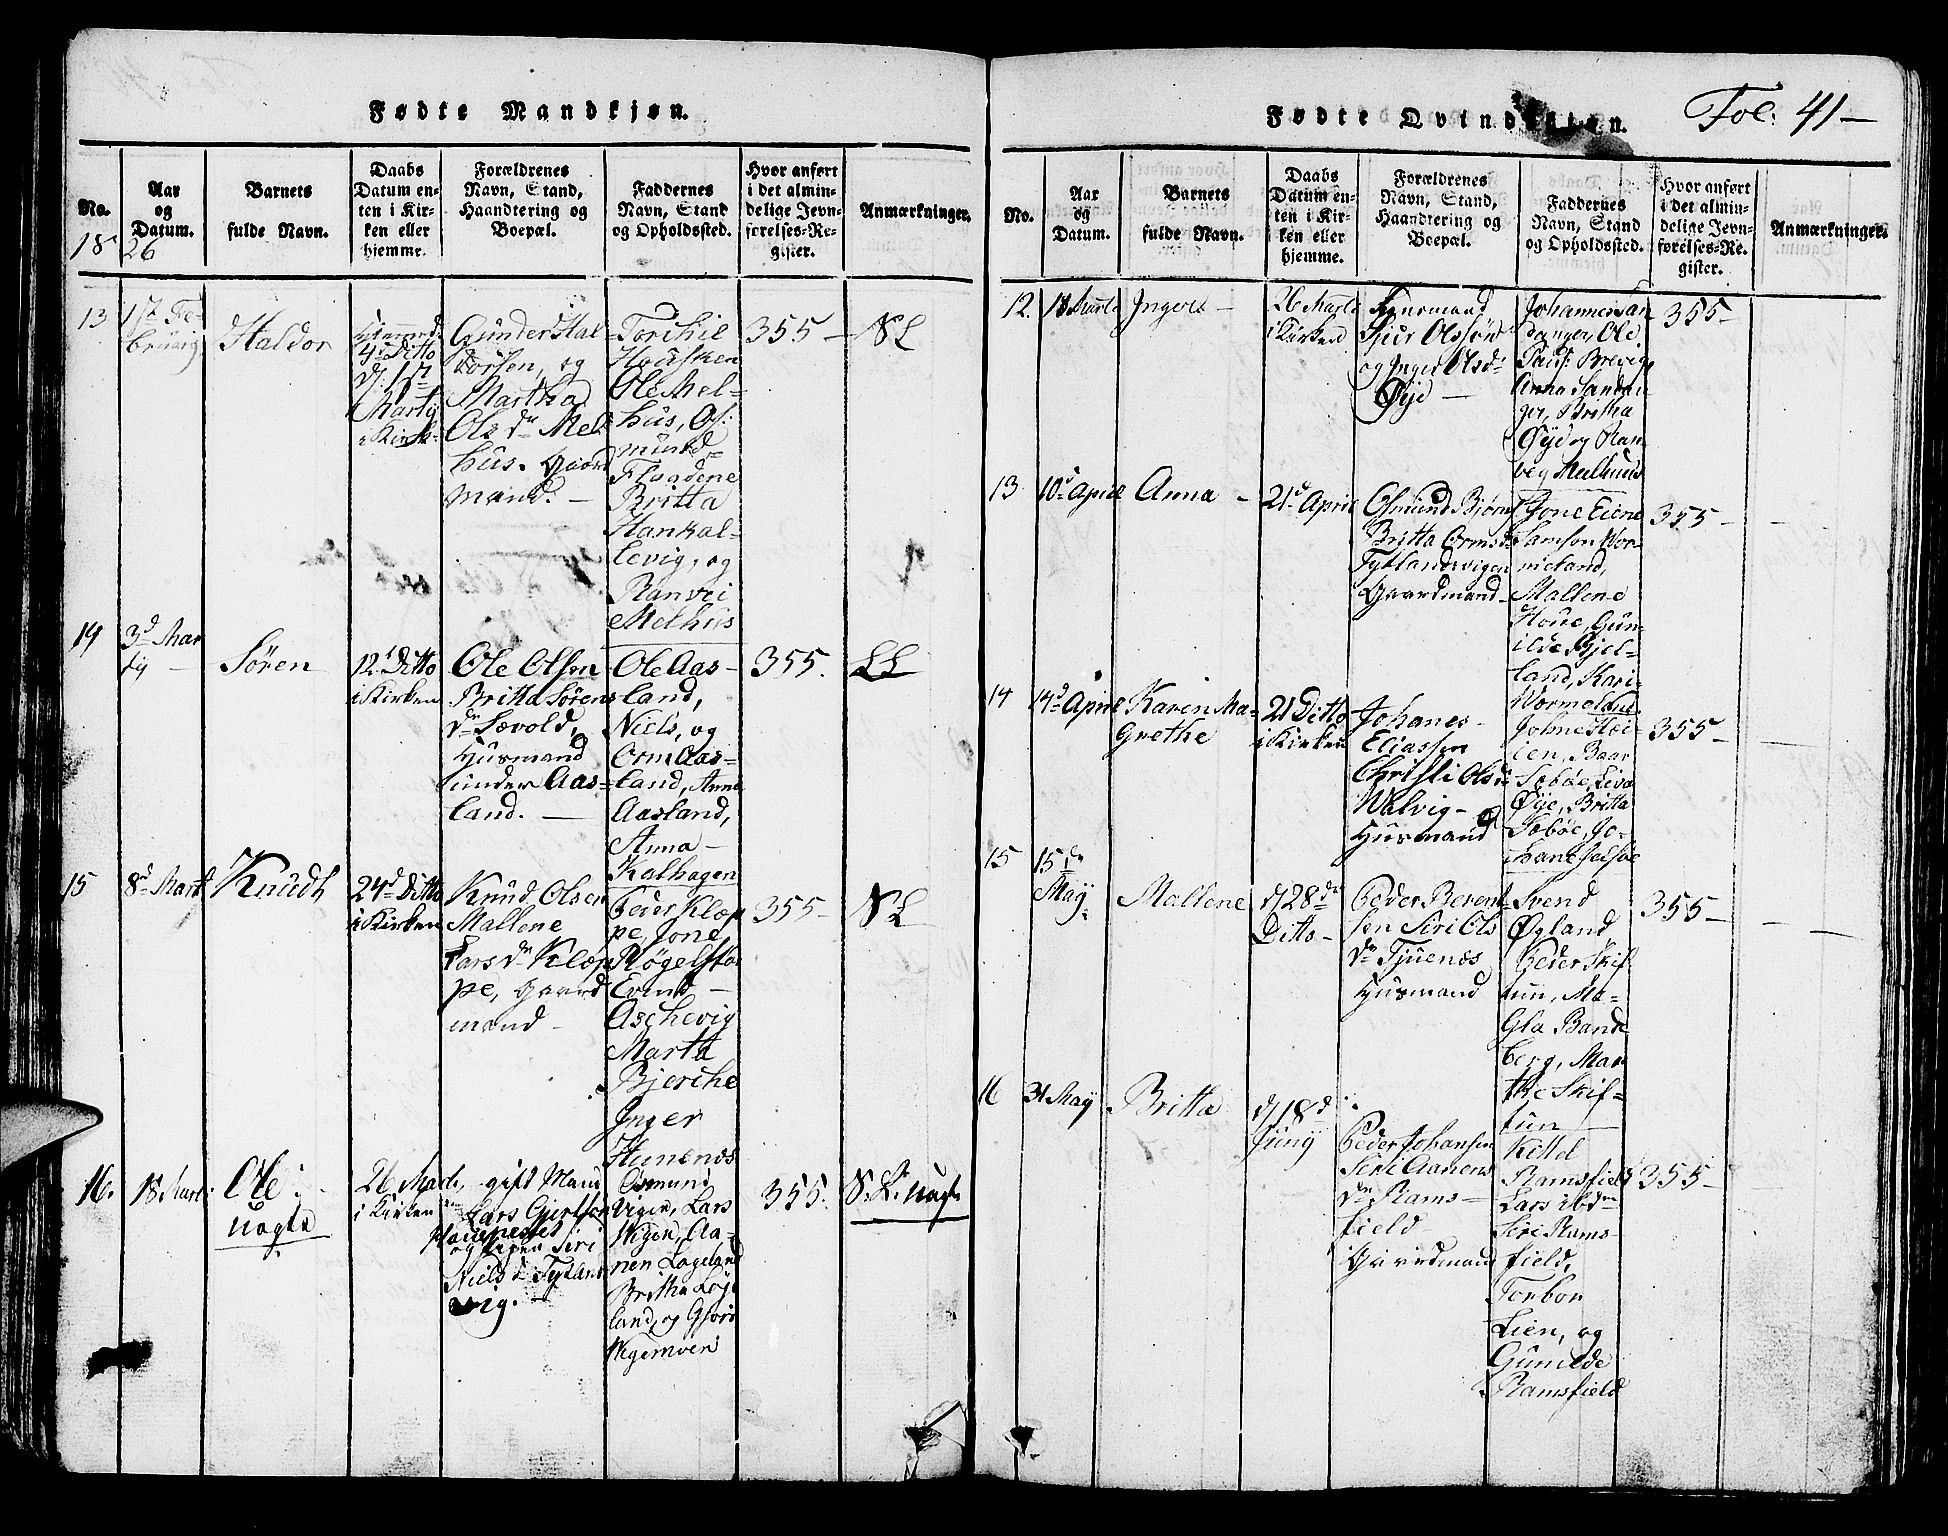 Fødte Mandkjøn.
No.
Aar
og
Datum.
Barnets
fulde Navn.
Daabs
Datum en-
ten i Kir-
ken eller
hjemme.
Forældrenes
Navn, Stand,
Haandtering og
Boepæl.
Faddernes
Navn, Stand
og Opholdssted.
Hvor anført
i det almin-
delige Jevn-
førelses-Re-
gister.
Anmærkninger.
1826
13
Haldor
4de Ditto
Gunder Hal-
dorsen, og
Martha
Ols Dr Mel-
hus. Gaard
mand. —
Torchil
Housken
Ole Mel-
hus, Os:
mund
Floadene
Britta
Hankal-
levig, og
Ranvei
Melhus
355 —
SL
14
3d Mar
tij —
Sören
12d Ditto
i Kirken
Ole Olsen
Britta Sørens
Dr Sævold,
Husmand
under Aas-
land. —
Ole Aas-
land,
Niels, og
Orm Aas-
land, Anne
Aasland,
Anna
Kalhagen
355.
LL
15
8d Mart
Knudt
24d Ditto
i Kirken
Knud Olsen
Mallene
Lars Dr Klep
pe, Gaard
mand —
Peder Klep
pe, Jone
Røgelsta
Erind —
Aschevig
Marta
Bjerche
Inger
Hunenes
355 —
SL
16.
18 Marti
Ole
uægte
26 Marti,
i Kirken
gift Mand
Lars Gjertsen
og Pigen Siri
Niels d. Tytlans
vig. —
Osmund
Vigen, Lars
Wigen, Aa-
nen Løgeland
Britha Løge
land, og
355.
S. L. uægte
Fødte Qvindekjøn.
Fol: 41 —
No.
Aar
og
Datum.
Barnets
fulde Navn.
Daabs
Datum en-
ten i Kir-
ken eller
hjemme.
Forældrenes
Navn, Stand,
Haandtering og
Boepæl.
Faddernes
Navn, Stand
og Opholdssted.
Hvor anført
i det almin-
delige Jevn-
førelses-Re-
gister.
Anmærkninger.
12.
18 Marti
Ingere —
26 Marti
i Kirken
Husmand
Sjur Olssøn
og Inger Olsd:
Øije —
Johannes San
danger, Ole
Paul: Brevig,
Anna Sandan
ger, Britha
Øije og Ran
veg Melhuus
355 —
13
10d April
Anna —
21d April
Osmund Bjørns
Britta Ormsd
Tytlandsvigen
Gaardmand —
Jone Eiene
Samson Wor-
meland,
Mallene
Houe, Gun-
ilde Bjel-
land, Kari
355 —
14
14d April
Karen Ma-
Grethe
21 Ditto
i Kirken
Johanes
Eliassen
Christi Olsd
Walvig —
Husmand
Sæbøe, Liva
Øije, Britta
Sæbøe, Jo-
355 —
15
15de
May
Mallene
d/ 28de
Ditto —
Peder Berent-
sen Siri Ols
Dr Tjuenæs
Husmand
Svend
Øgland
Peder Skif-
tun, Ma-
Gla Bande
berg, Mar
the Skif-
tun
355 —
16
31 May
Britta
d/ 18d
Juny
Peder Johansen
Siri Aanens
Dr Rams-
field
Gaardmand
Kittel
Ramsfield
Lars ibdm
Siri Rams-
field,
Torbor
Lien, og
Gunilde
Ramsfield
355 —